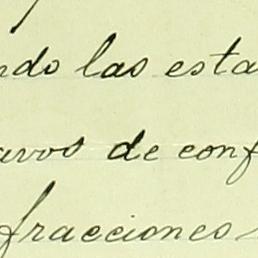 ndo las esta
avos de conf
fracciones